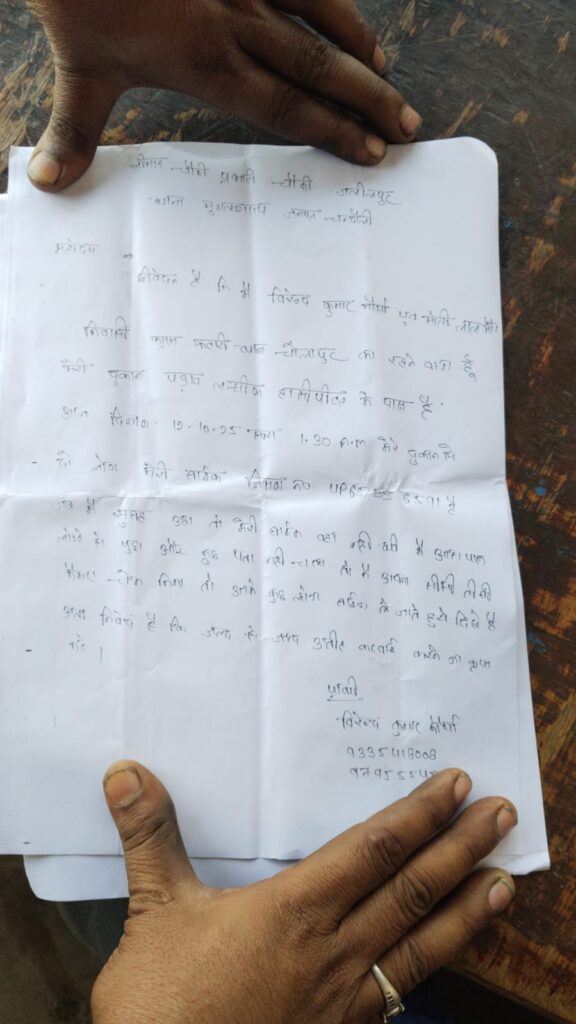 श्रीमान चौकी प्रभारी चौकी जलीलपुर
थाना मुगलसराय जनपद चन्दौली
महोदय
निवेदन है कि मै विरेन्द्र कुमार मौर्या पुत्र मोती लाल मौर्य
निवासी ग्राम थाना चौलापुर का रहने वाला हूँ
मेरी दुकान पड़ाव के पास है
आज दिनांक 12-10-25 समय 1.30 A.M मेरे दुकान से
दो लोग मेरी बाईक जिसका न० UP65 6591 है
जब मै सुबह उठा तो मेरी बाईक वहा नही थी मै आस पास
लोगो से पुछा और कुछ पता नही चला तो मै अपना सीसी टीवी
कैमरा चेक किया तो उसमे कुछ लोग बाईक ले जाते हुये दिखे है
अतः निवेदन है कि जल्द से जल्द उचीत करवाई करने का कृपा
करे।
प्रार्थी
विरेन्द्र कुमार मौर्या